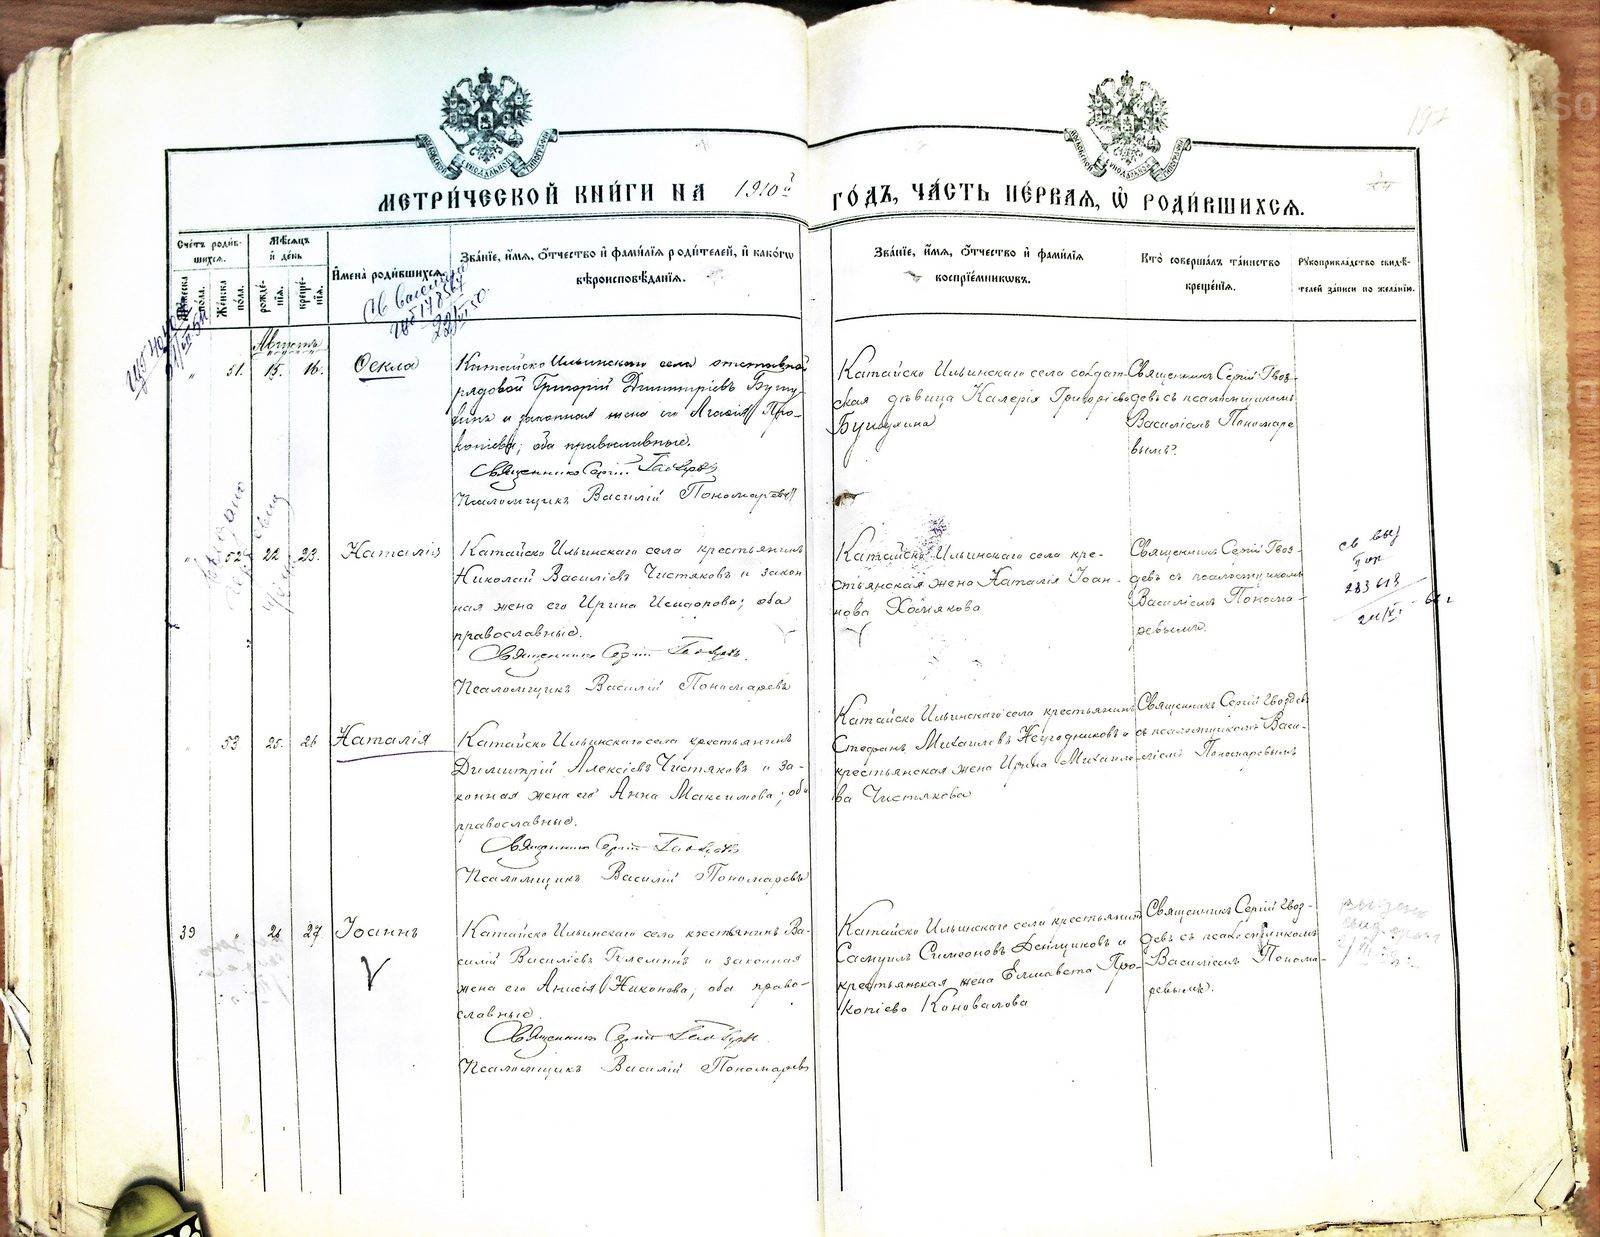 МЕТРИ́ЧЕСКОЙ КНИ́ГИ НА 1910й ГО́ДЪ, ЧА́СТЬ ПЕ́РВАЯ, Ѡ РОДИ́ВШИХСЯ.
197
Сче́тъ роди́в-
шихся.
Мѣ́сяцъ
и҆ де́нь
Мꙋ́жеска по́ла.
Же́нска по́ла.
рожде́-
нїя.
креще́-
нїя.
И҆мена̀ роди́вшихся.
Зва́нїе, и҆́мя, ѻ҆́тчество и҆ фами́лїя роди́телей, и҆ како́гѡ
вѣроисповѣ́данїя.
Зва́нїе, и҆́мя, ѻ҆́тчество и҆ фами́лїя
воспрїе́мникѡвъ.
Кто̀ соверша́лъ та́инство
креще́нїя.
Рꙋкоприкла́дство свидѣ́-
телей за́писи по жела́нїю.
Августъ
" 51. 15. 16. Фекла
Катайско Ильинскаго села отставной
рядовой Григорій Димитріевъ Бугу
и законная жена его Агафія Про-
копіева; оба православные.
Священникъ Сергій Гвоздевъ
Псаломщикъ Василій Пономаревъ
Катайско Ильинскаго села солдат-
ская дѣвица Калерія Григорьева
Священникъ Сергій Гвоз-
девъ съ псаломщикомъ
Василіемъ Пономаре
вымъ.
" 52 22 23. Наталія
Катайско Ильинскаго села крестьянинъ
Николай Василіевъ Чистяковъ и закон
ная жена его Ирина Исидорова; оба
православные.
Священникъ Сергій Гвоздевъ
Псаломщикъ Василій Пономаревъ
Катайско Ильинскаго села кре-
стьянская жена Наталія Іоан-
нова Хомякова
Священникъ Сергій Гвоз-
девъ съ псаломщикомъ
Василіемъ Пономa-
ревымъ.
" 53 25. 26 Наталія
Катайско Ильинскаго села крестьянинъ
Димитрій Алексіевъ Чистяковъ и за-
конная жена его Анна Максимова; оба
православные.
Священникъ Сергій Гвоздевъ
Псаломщикъ Василій Пономаревъ
Катайско Ильинскаго села крестьянинъ
Стефанъ Михаиловъ Неугодниковъ и
крестьянская жена Ирина Михаило-
ва Чистякова
Священникъ Сергій Гвоздевъ
съ псаломщикомъ Васи-
ліемъ Пономаревымъ
39 " 26 27 Іоаннъ
Катайско Ильинскаго села крестьянинъ Ва-
силій Василіевъ и законная
жена его Анисія Никонова; оба право-
славные.
Священникъ Сергій Гвоздевъ
Псаломщикъ Василій Пономаревъ
Катайско Ильинскаго села крестьянинъ
Самуилъ Симеоновъ и
крестьянская жена Елизавета Про-
копіева Коновалова
Священникъ Сергій Гвоз-
девъ съ псаломщикомъ
Василіемъ Понома-
ревымъ.